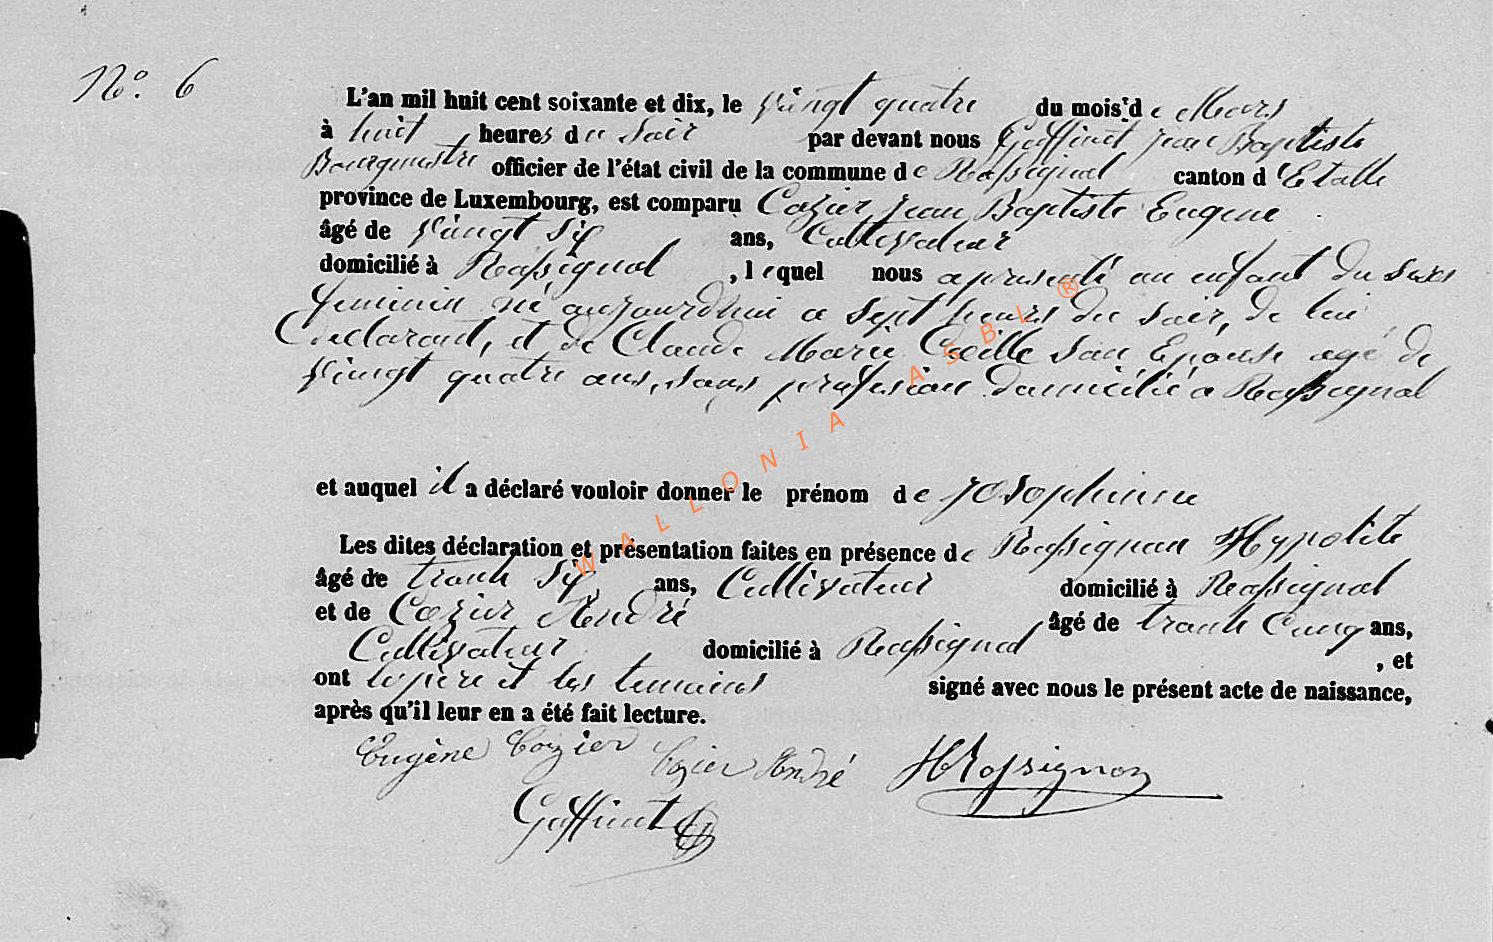 N°. 6
L'an mil huit cent soixante et dix, le vingt quatre du mois de Mars
à huit heures du Soir par devant nous Goffinet Jean Baptiste
Bourgmestre officier de l'état civil de la commune de Rossignol canton d'Etalle
province de Luxembourg, est comparu Cozier Jean Baptiste Eugene
âgé de vingt Six ans, Cultivateur
domicilié à Rossignol, lequel nous a présenté un enfant du Sexe
feminin né aujourd'hui a Sept heures du Soir, de lui
declarant, et de Claude Marie Cecille Son Epouse agé de
vingt quatre ans, Sans profession domicilié a Rossignol
et auquel il a déclaré vouloir donner le prénom de Josophinne
Les dites déclaration et présentation faites en présence de Rossignon Hypolite
âgé de trante Six ans, Cultivateur domicilié à Rossignol
et de Cozier André âgé de trante Cinq ans,
Cultivateur domicilié à Rossignol, et
ont le père et les temoins signé avec nous le présent acte de naissance,
après qu'il leur en a été fait lecture.
Eugène Cozier Cozier André HRossignon
Goffinet
WALLONIA ASBL ®